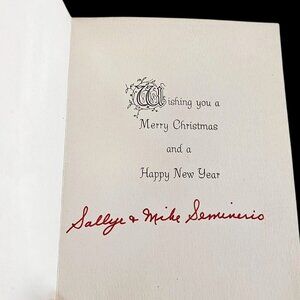 Wishing you a
Merry Christmas
and a
Happy New Year
Sallye & Mike Seminerio